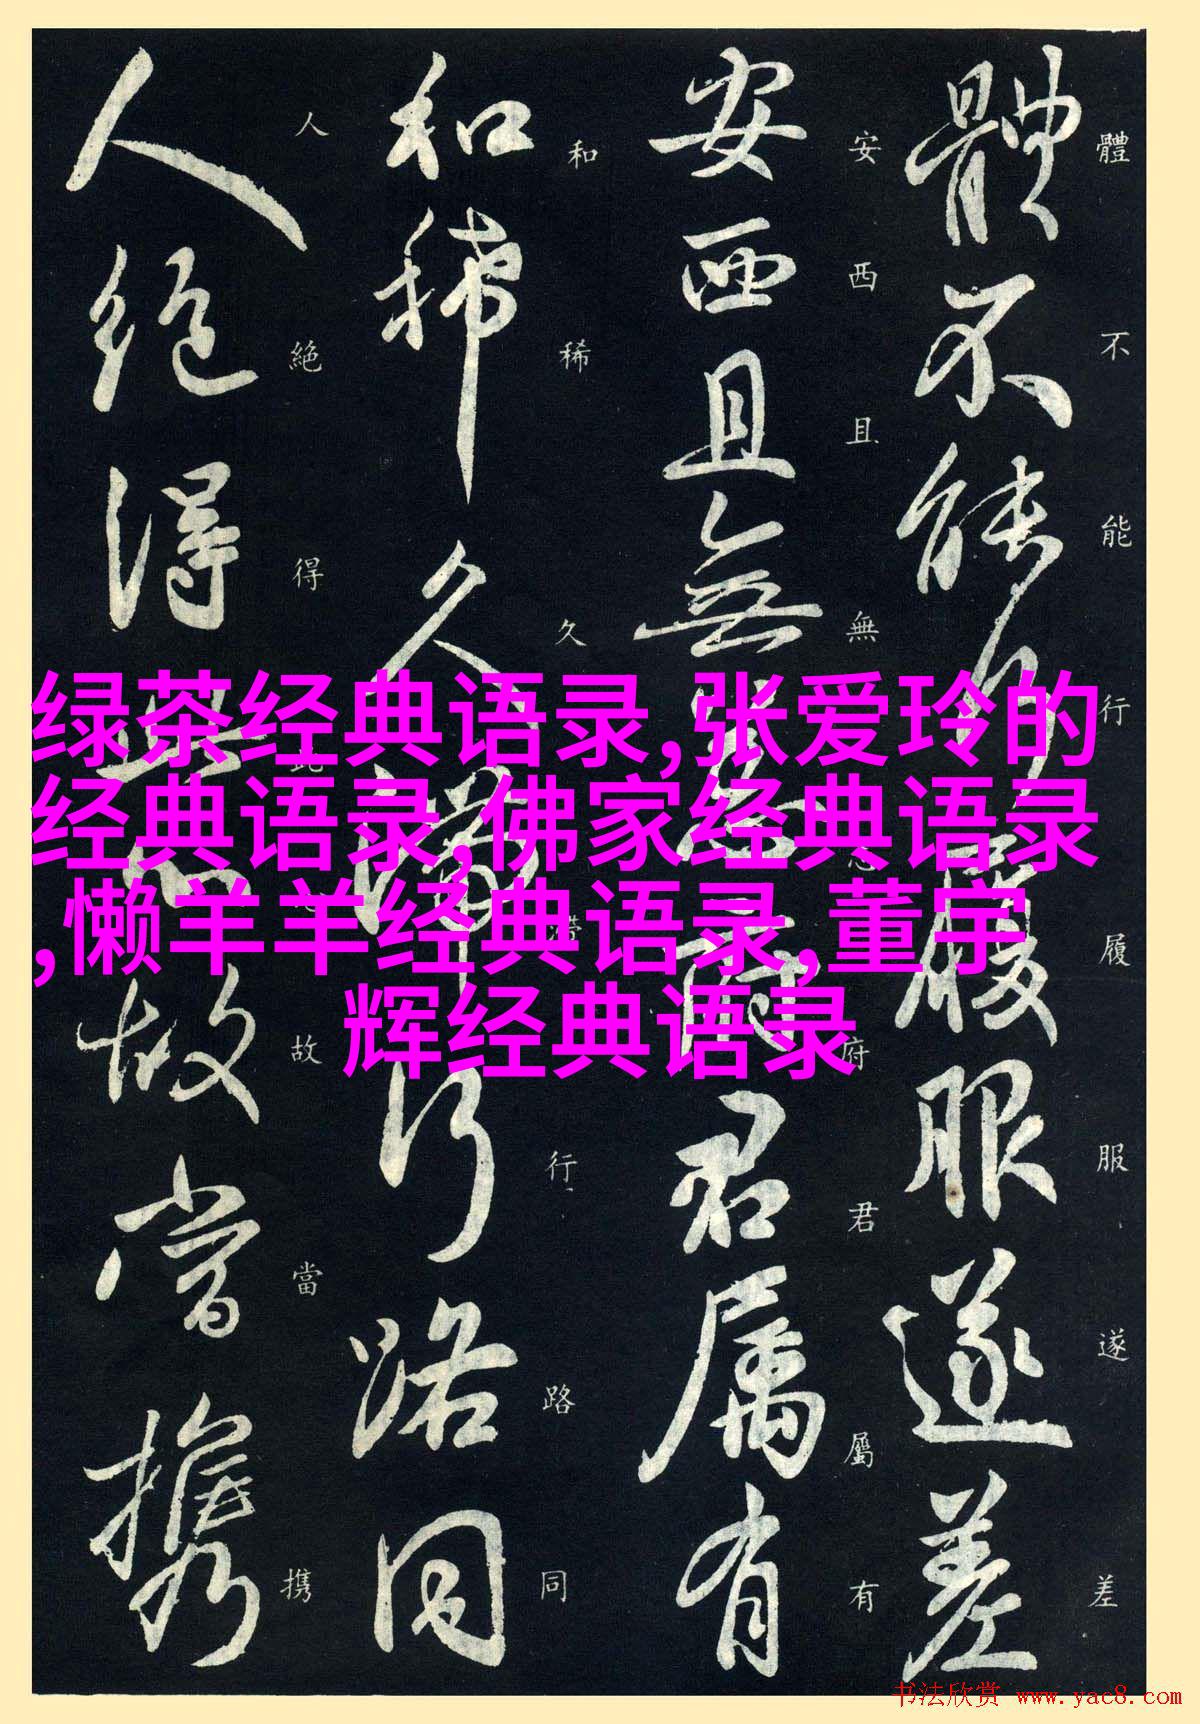 體不能行履服遂差
體不能行履服遂差
安西且無府君屬有
安西且無府君屬有
和稀久滯行路同
和稀久滯行路同
人絕得故當攜
人絕得此故當携
绿茶经典语录,张爱玲的
经典语录,佛家经典语录
,懒羊羊经典语录,董宇
辉经典语录
书法欣赏 www.yac8.com